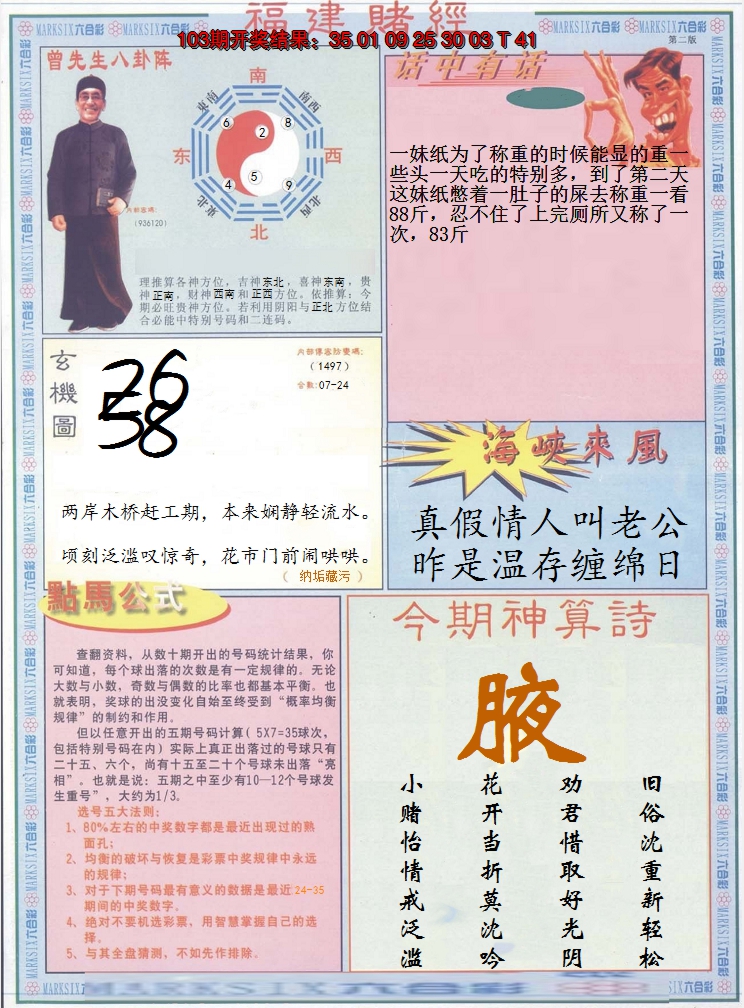 福建賭經
103期开奖结果：35 01 09 25 30 03 T 41
MARKSIX六合彩
MARKSIX六合彩
MARKSIX六合彩
第二版
曾先生八卦阵
南
东南
南西
6
2
8
东
西
4
5
9
東北
北西
北
内部密碼:
（936120）
理推算各神方位，吉神东北，喜神东南，贵
神正南，财神西南和正西方位。依推算：今
期必旺贵神方位。若利用阴阳与正北方位结
合必能中特别号码和二连码。
话中有话
一妹纸为了称重的时候能显的重一
些头一天吃的特别多，到了第二天
这妹纸憋着一肚子的屎去称重一看
88斤，忍不住了上完厕所又称了一
次，83斤
玄機圖
26
58
（1497）
合数:07-24
两岸木桥赶工期，本来娴静轻流水。
顷刻泛滥叹惊奇，花市门前闹哄哄。
（ 纳垢藏污 ）
海峽來風
真假情人叫老公
昨是温存缠绵日
點馬公式
查翻资料，从数十期开出的号码统计结果，你
可知道，每个球出落的次数是有一定规律的。无论
大数与小数，奇数与偶数的比率也都基本平衡。也
就表明，奖球的出没变化自始至终受到“概率均衡
规律”的制约和作用。
但以任意开出的五期号码计算（5X7=35球次，
包括特别号码在内）实际上真正出落过的号球只有
二十五、六个，尚有十五至二十个号球未出落“亮
相”。也就是说：五期之中至少有10—12个号球发
生重号”，大约为1/3。
选号五大法则：
1、80%左右的中奖数字都是最近出现过的熟
面孔；
2、均衡的破坏与恢复是彩票中奖规律中永远
的规律；
3、对于下期号码最有意义的数据是最近24-35
期间的中奖数字。
4、绝对不要机选彩票，用智慧掌握自己的选
择。
5、与其全盘猜测，不如先作排除。
今期神算詩
腋
小赌怡情戒泛滥
花开当折莫沈吟
劝君惜取好光阴
旧俗沈重新轻松